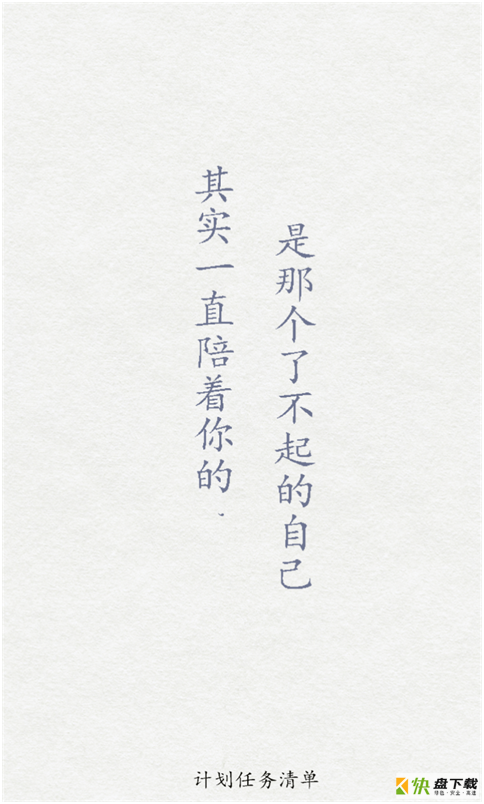 其实一直陪着你的，
是那个了不起的自己
计划任务清单
快盘下载
绿色·安全·高速